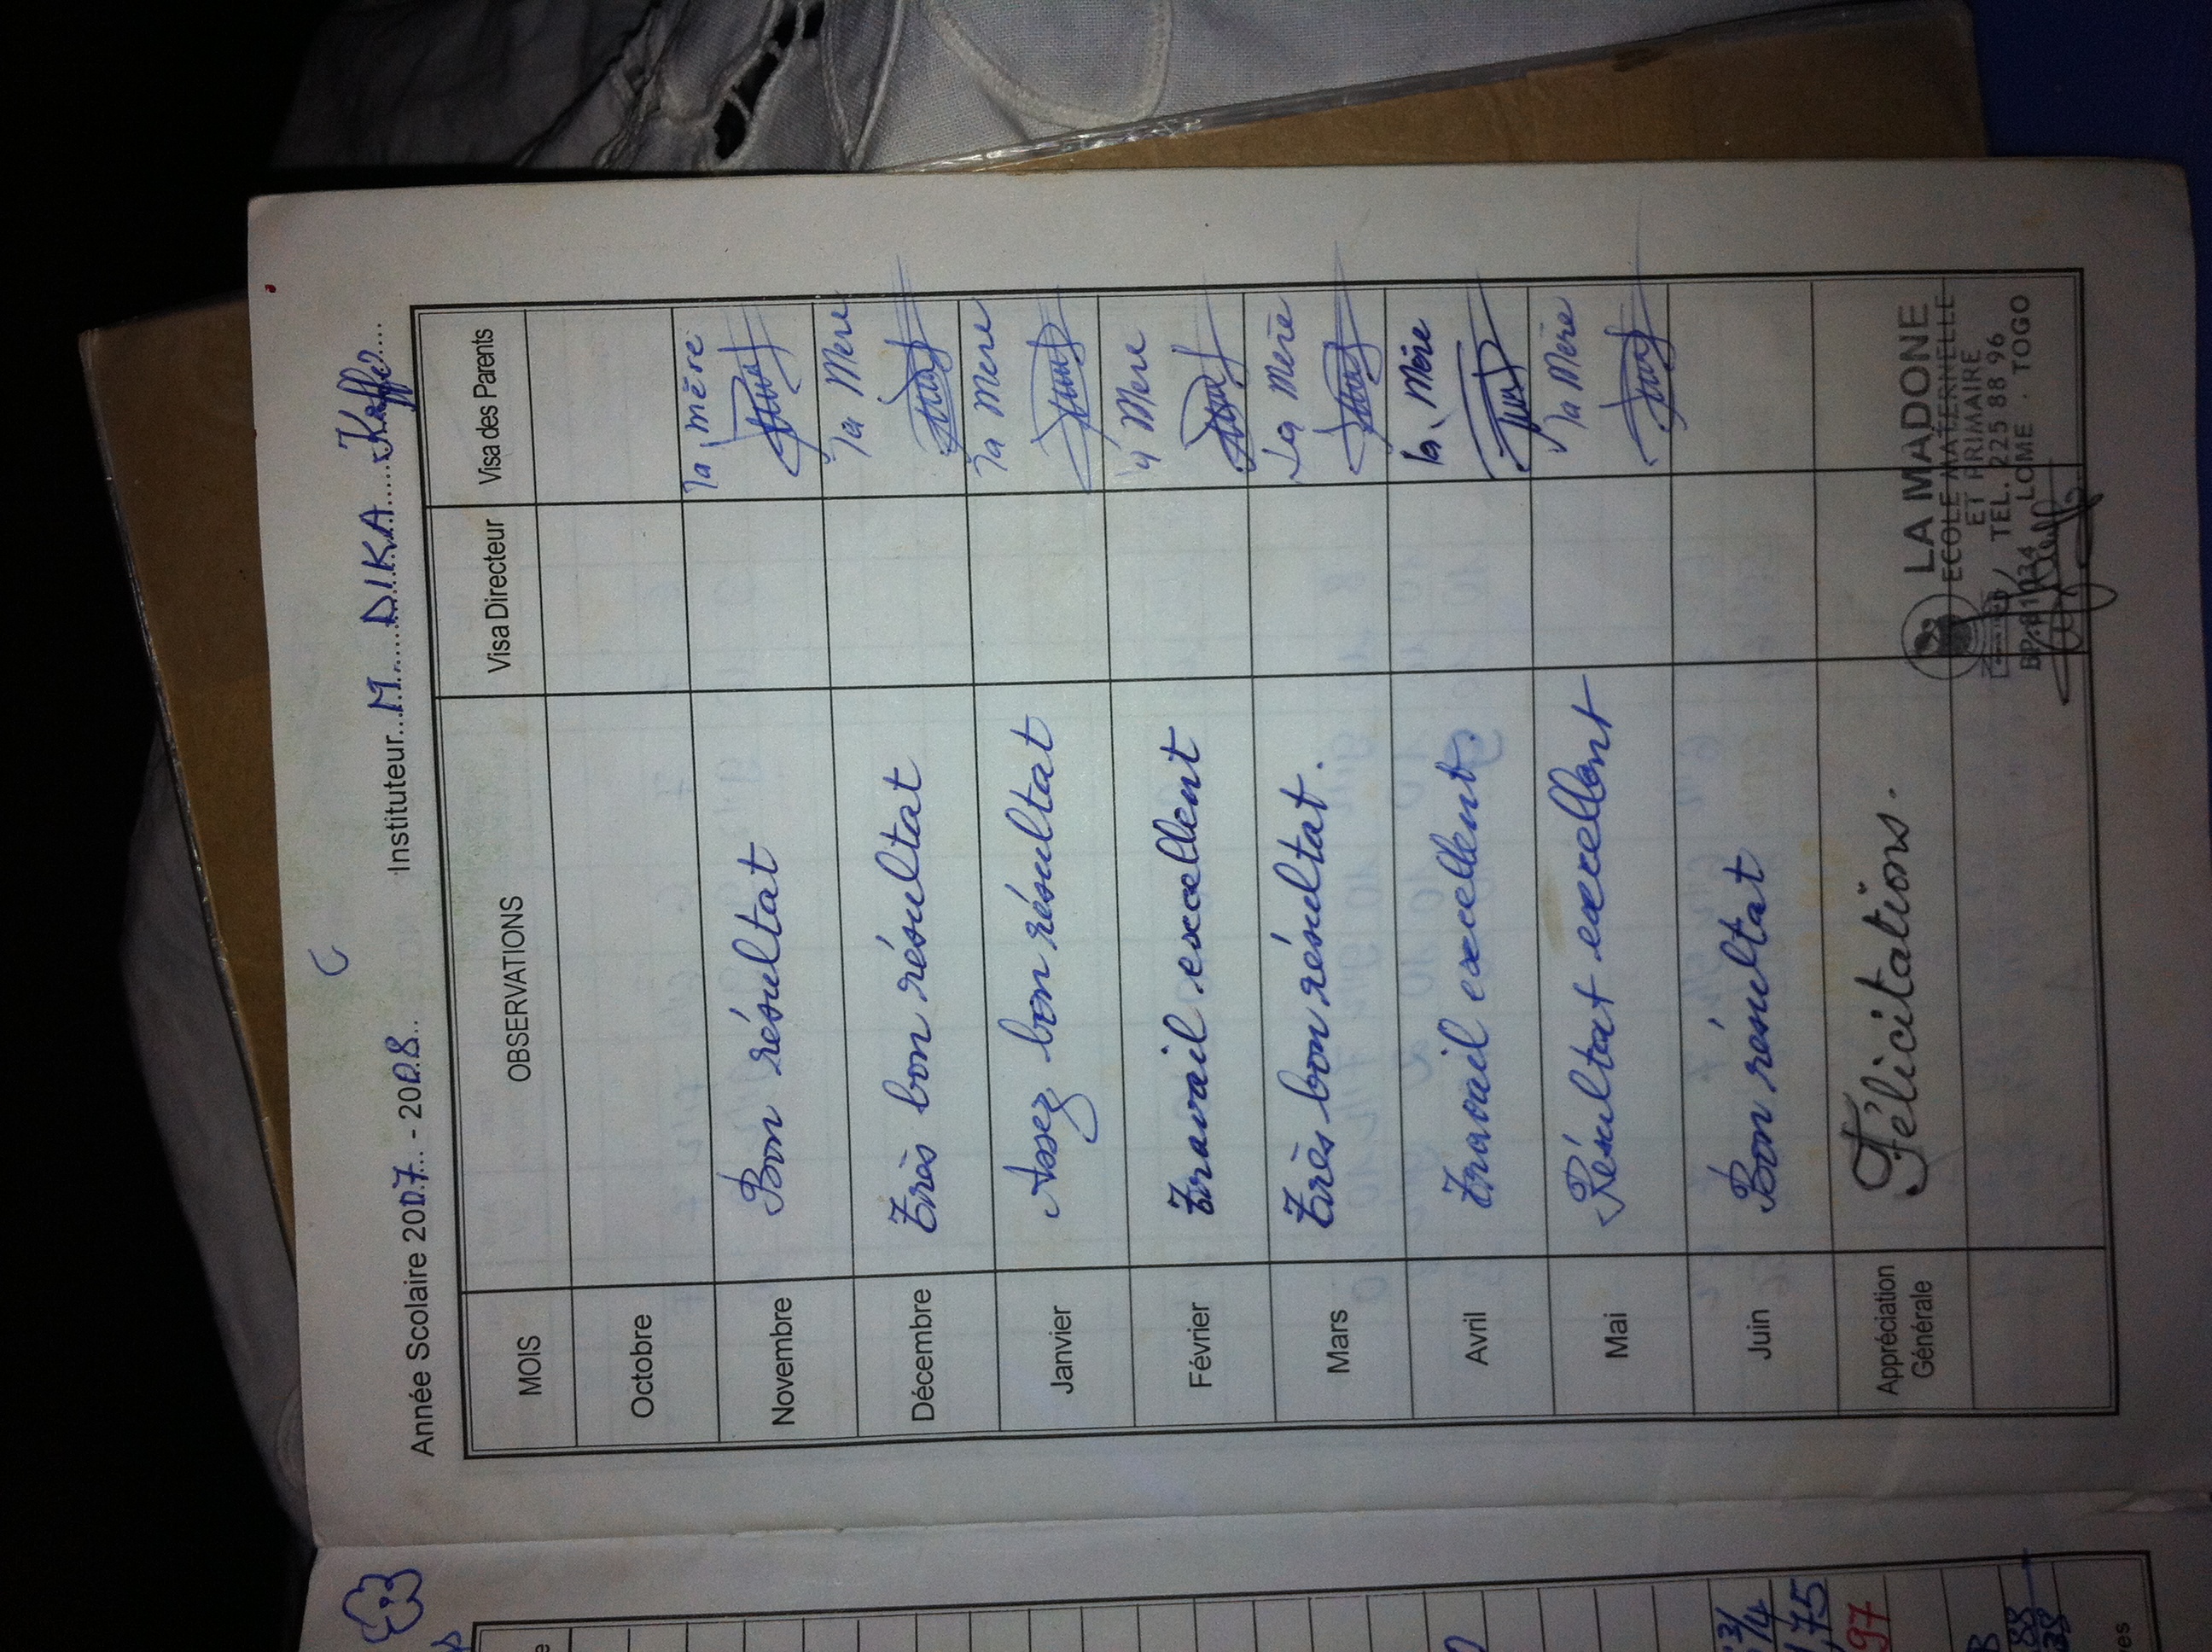 Année Scolaire 2007 - 2008 Instituteur M. DIKA Keffo
MOIS OBSERVATIONS Visa Directeur Visa des Parents
Octobre
la mère
Novembre Bon résultat
la Mere
Décembre Très bon résultat
la Mere
Janvier Assez bon résultat
Mere
Février Travail excellent
La Mère
Mars Très bon résultat.
la Mère
Avril Travail excellent.
la Mère
Mai Résultat excellent
Juin Bon résultat
Appréciation
Générale
Félicitations.
LA MADONE
ECOLE MATERNELLE
ET PRIMAIRE
TEL. 225 88 96
BP:81034 LOME - TOGO
3/4
,75
97
B
88
38